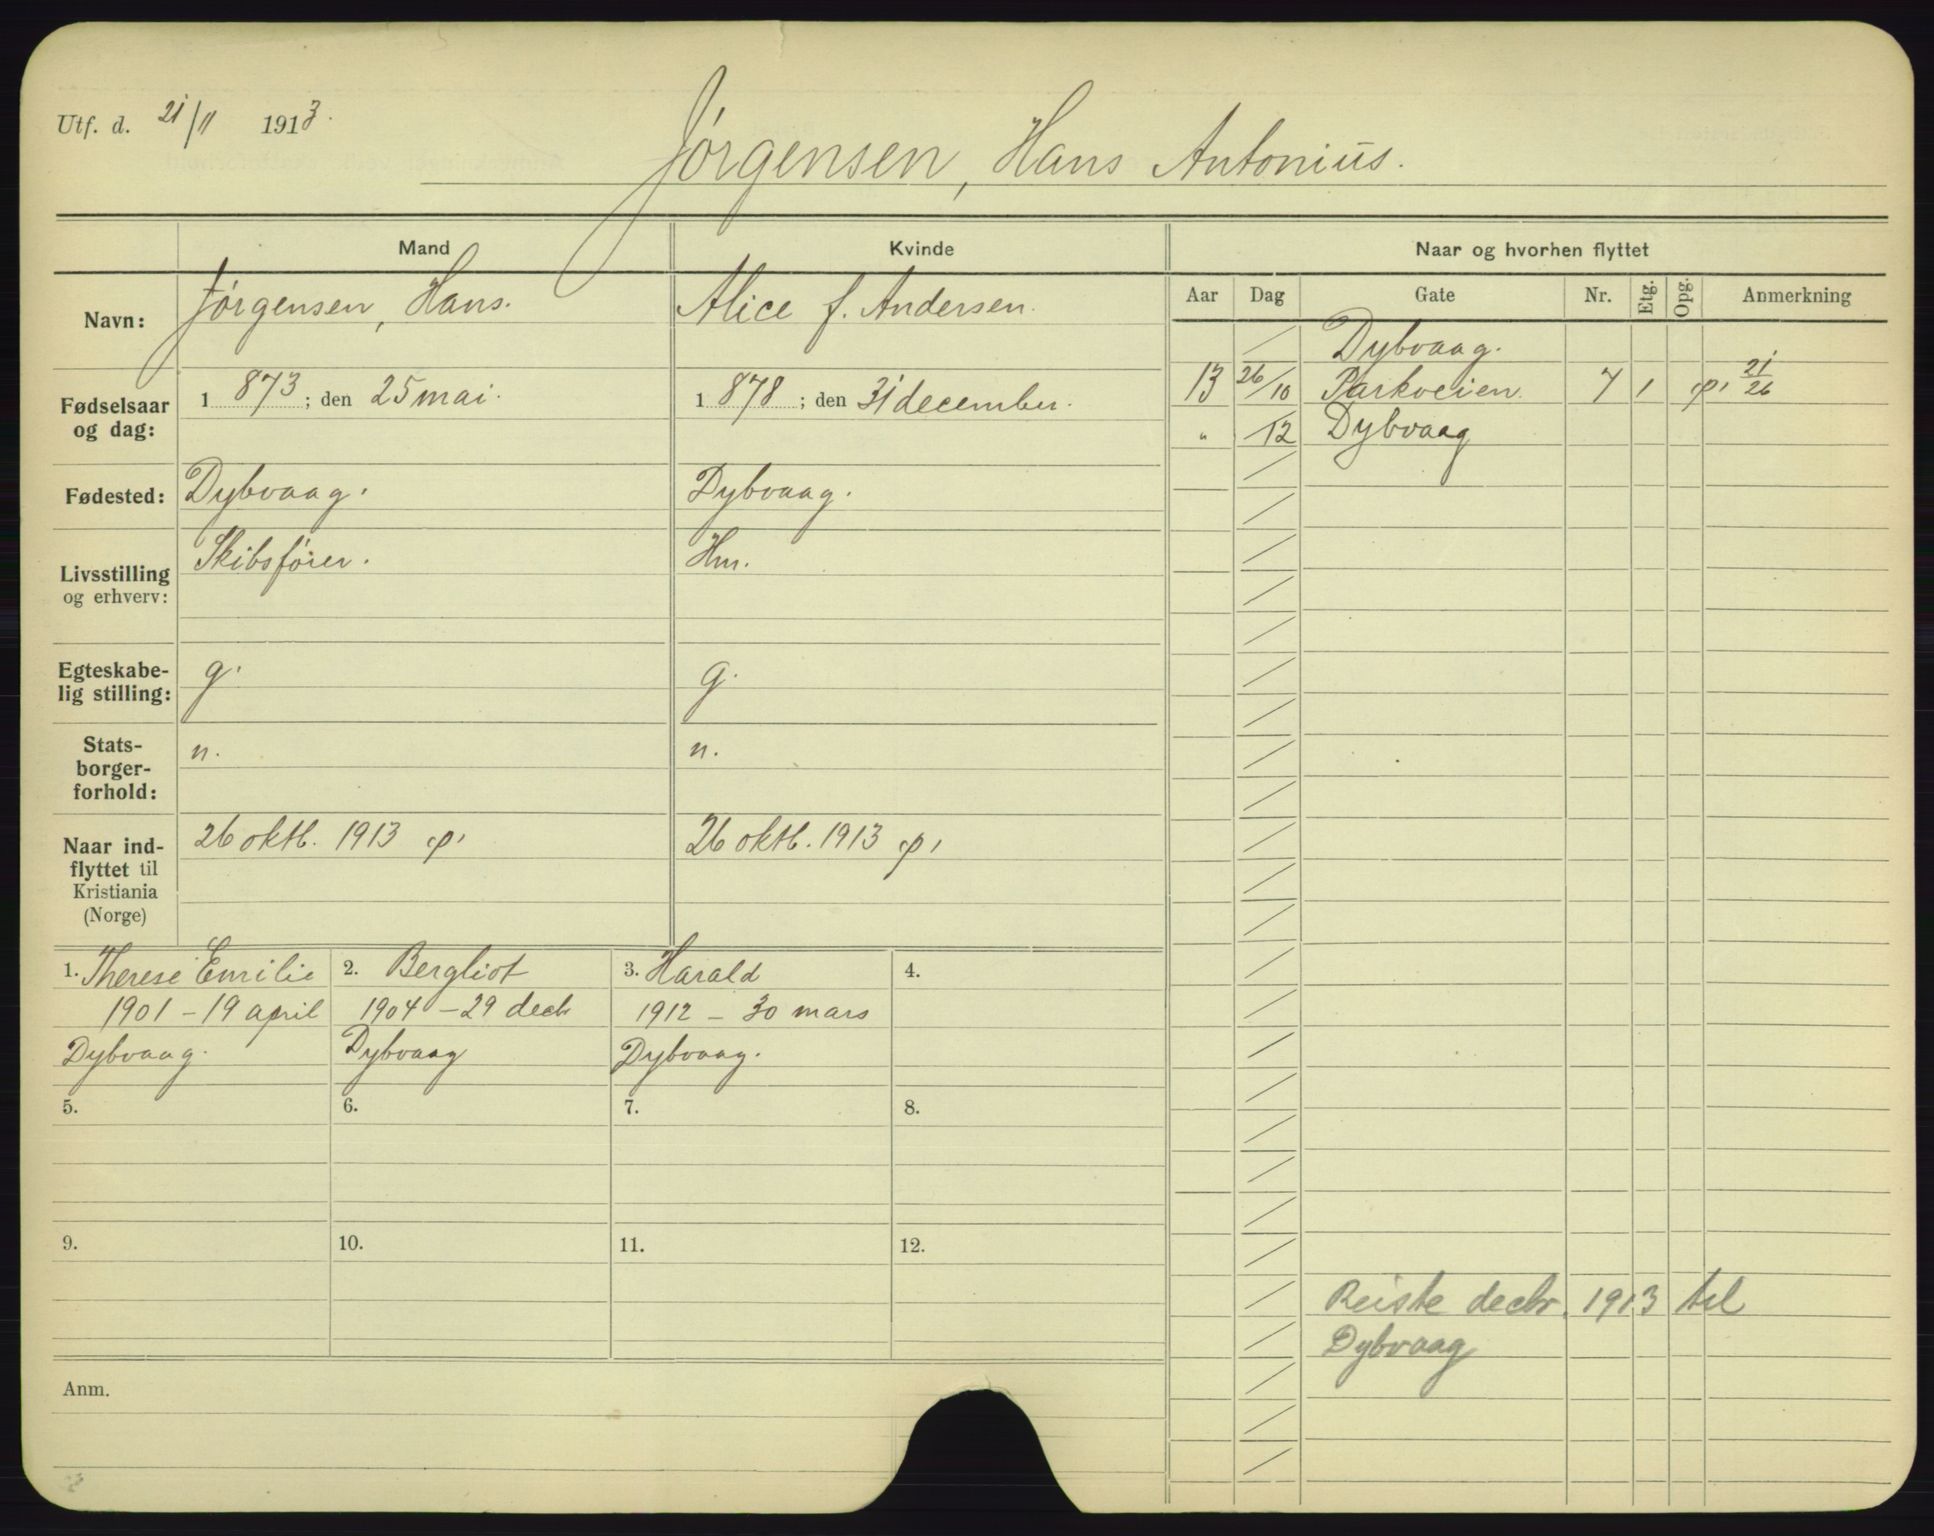 Utf. d. 21/11 1913.
Jørgensen, Hans Antonius.
Mand
Kvinde
Naar og hvorhen flyttet
Navn:
Jørgensen, Hans.
Alice f. Andersen.
Fødselsaar og dag:
1873; den 25 mai.
1878; den 31 december.
Fødested:
Dybvaag.
Dybvaag.
Livsstilling
og erhverv:
Skibsfører.
Hm.
Egteskabe-
lig stilling:
g.
g.
Stats-
borger-
forhold:
n.
n.
Naar ind-
flyttet til
Kristiania
(Norge)
26 oktb. 1913
26 oktb. 1913
1. Therese Emilie
1901 - 19 april
Dybvaag.
2. Bergliot
1904 - 29 decb
Dybvaag
3. Harald
1912 - 30 mars
Dybvaag.
4.
5.
6.
7.
8.
9.
10.
11.
12.
Anm.
Aar Dag Gate Nr. Etg. Opg. Anmerkning
Dybvaag.
13 26/10 Parkveien 7 1 21/26
" /12 Dybvaag
Reiste decbr. 1913 til
Dybvaag